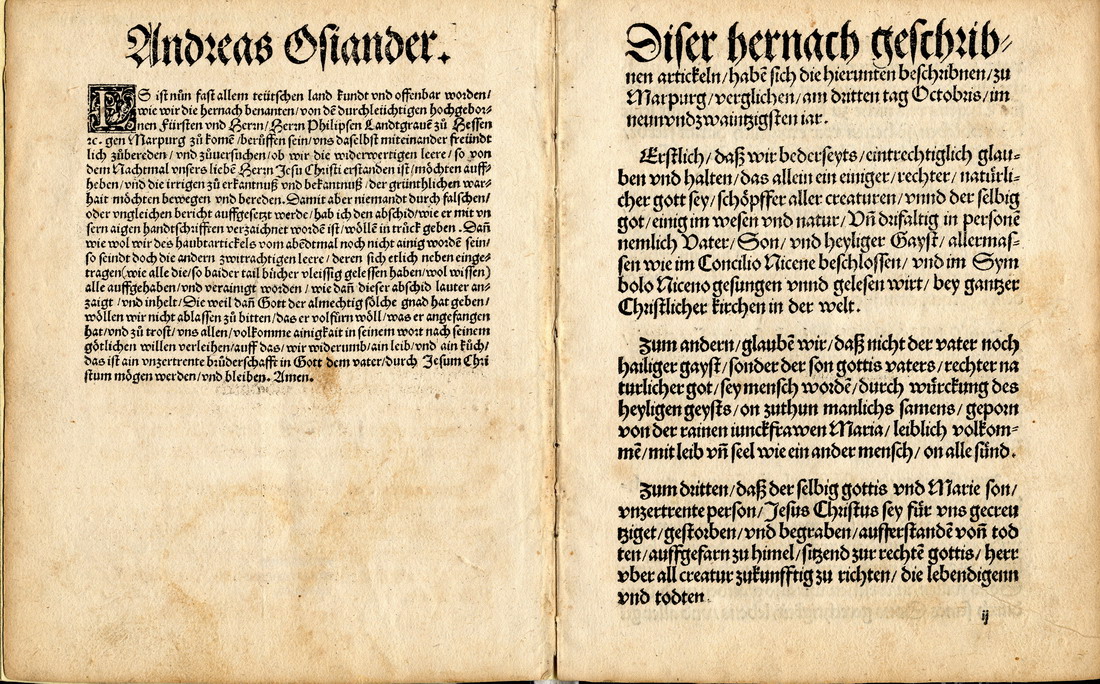 Andreas Osiander.
ES ist nůn fast allem teütschen land kundt vnd offenbar worden/
wie wir die hernach benanten/von dē durchleüchtigen hochgebor⸗
nen Fürsten vnd Herrn/Herrn Philipsen Landtgrauē zů Hessen
ꝛc. gen Marpurg zů komē/berůffen sein/vns daselbst miteinander freündt
lich zůbereden/vnd zůuersuchen/ob wir die widerwertigen leere/so von
dem Nachtmal vnsers liebē Herrn Jesu Christi erstanden ist/möchten auff⸗
heben/vnd die irrigen zů erkantnuß vnd bekantnuß/der grüntlichen war⸗
hait möchten bewegen vnd bereden. Damit aber niemandt durch falschen/
oder vngleichen bericht auffgesetzt werde/hab ich den abschid/wie er mit vn
sern aigen handtschrifften verzaichnet wordē ist/wöllē in trück geben. Dañ
wie wol wir des haubtartickels vom abēdtmal noch nicht ainig wordē sein/
so seindt doch die andern zwitrachtigen leere/deren sich etlich neben einge⸗
tragen(wie alle die/so baider tail bücher vleissig gelessen haben/wol wissen)
alle auffgehaben/vnd verainigt worden/wie dañ dieser abschid lauter an⸗
zaigt/vnd inhelt/Die weil dañ Gott der almechtig sölche gnad hat geben/
wöllen wir nicht ablassen zů bitten/das er volfürn wöll/was er angefangen
hat/vnd zů trost/vns allen/volkomme ainigkait in seinem wort nach seinem
götlichen willen verleihen/auff das/wir widerumb/ain leib/vnd ain kůch/
das ist ain vnzertrente brüderschafft in Gott dem vater/durch Jesum Chri
stum mögen werden/vnd bleiben. Amen.
Diser hernach geschrib⸗
nen artickeln/habē sich die hierunten beschribnen/zu
Marpurg/verglichen/am dritten tag Octobris/im
neunvndzwaintzigsten iar.
Erstlich/daß wir bederseyts/eintrechtiglich glau⸗
ben vnd halten/das allein ein einiger/rechter/natürli⸗
cher gott sey/schöpffer aller creaturen/vnnd der selbig
got/einig im wesen vnd natur/Vñ drifaltig in personē
nemlich Vater/Son/vnd heyliger Gayst/allermas⸗
sen wie im Concilio Nicene beschlossen/vnd im Sym
bolo Niceno gesungen vnnd gelesen wirt/bey gantzer
Christlicher kirchen in der welt.
Zum andern/glaubē wir/daß nicht der vater noch
hailiger gayst/sonder der son gottis vaters/rechter na
turlicher got/sey mensch wordē/durch würckung des
heyligen geysts/on zuthun manlichs samens/geporn
von der rainen iunckfrawen Maria/leiblich volkom⸗
mē/mit leib vñ seel wie ein ander mensch/on alle sünd.
Zum dritten/daß der selbig gottis vnd Marie son/
vnzertrente person/Jesus Christus sey für vns gecreu
tziget/gestorben/vnd begraben/aufferstandē voñ tod
ten/auffgefarn zu himel/sitzend zur rechtē gottis/herr
vber all creatur zukunfftig zu richten/die lebendigenn
vnd todten.
ij